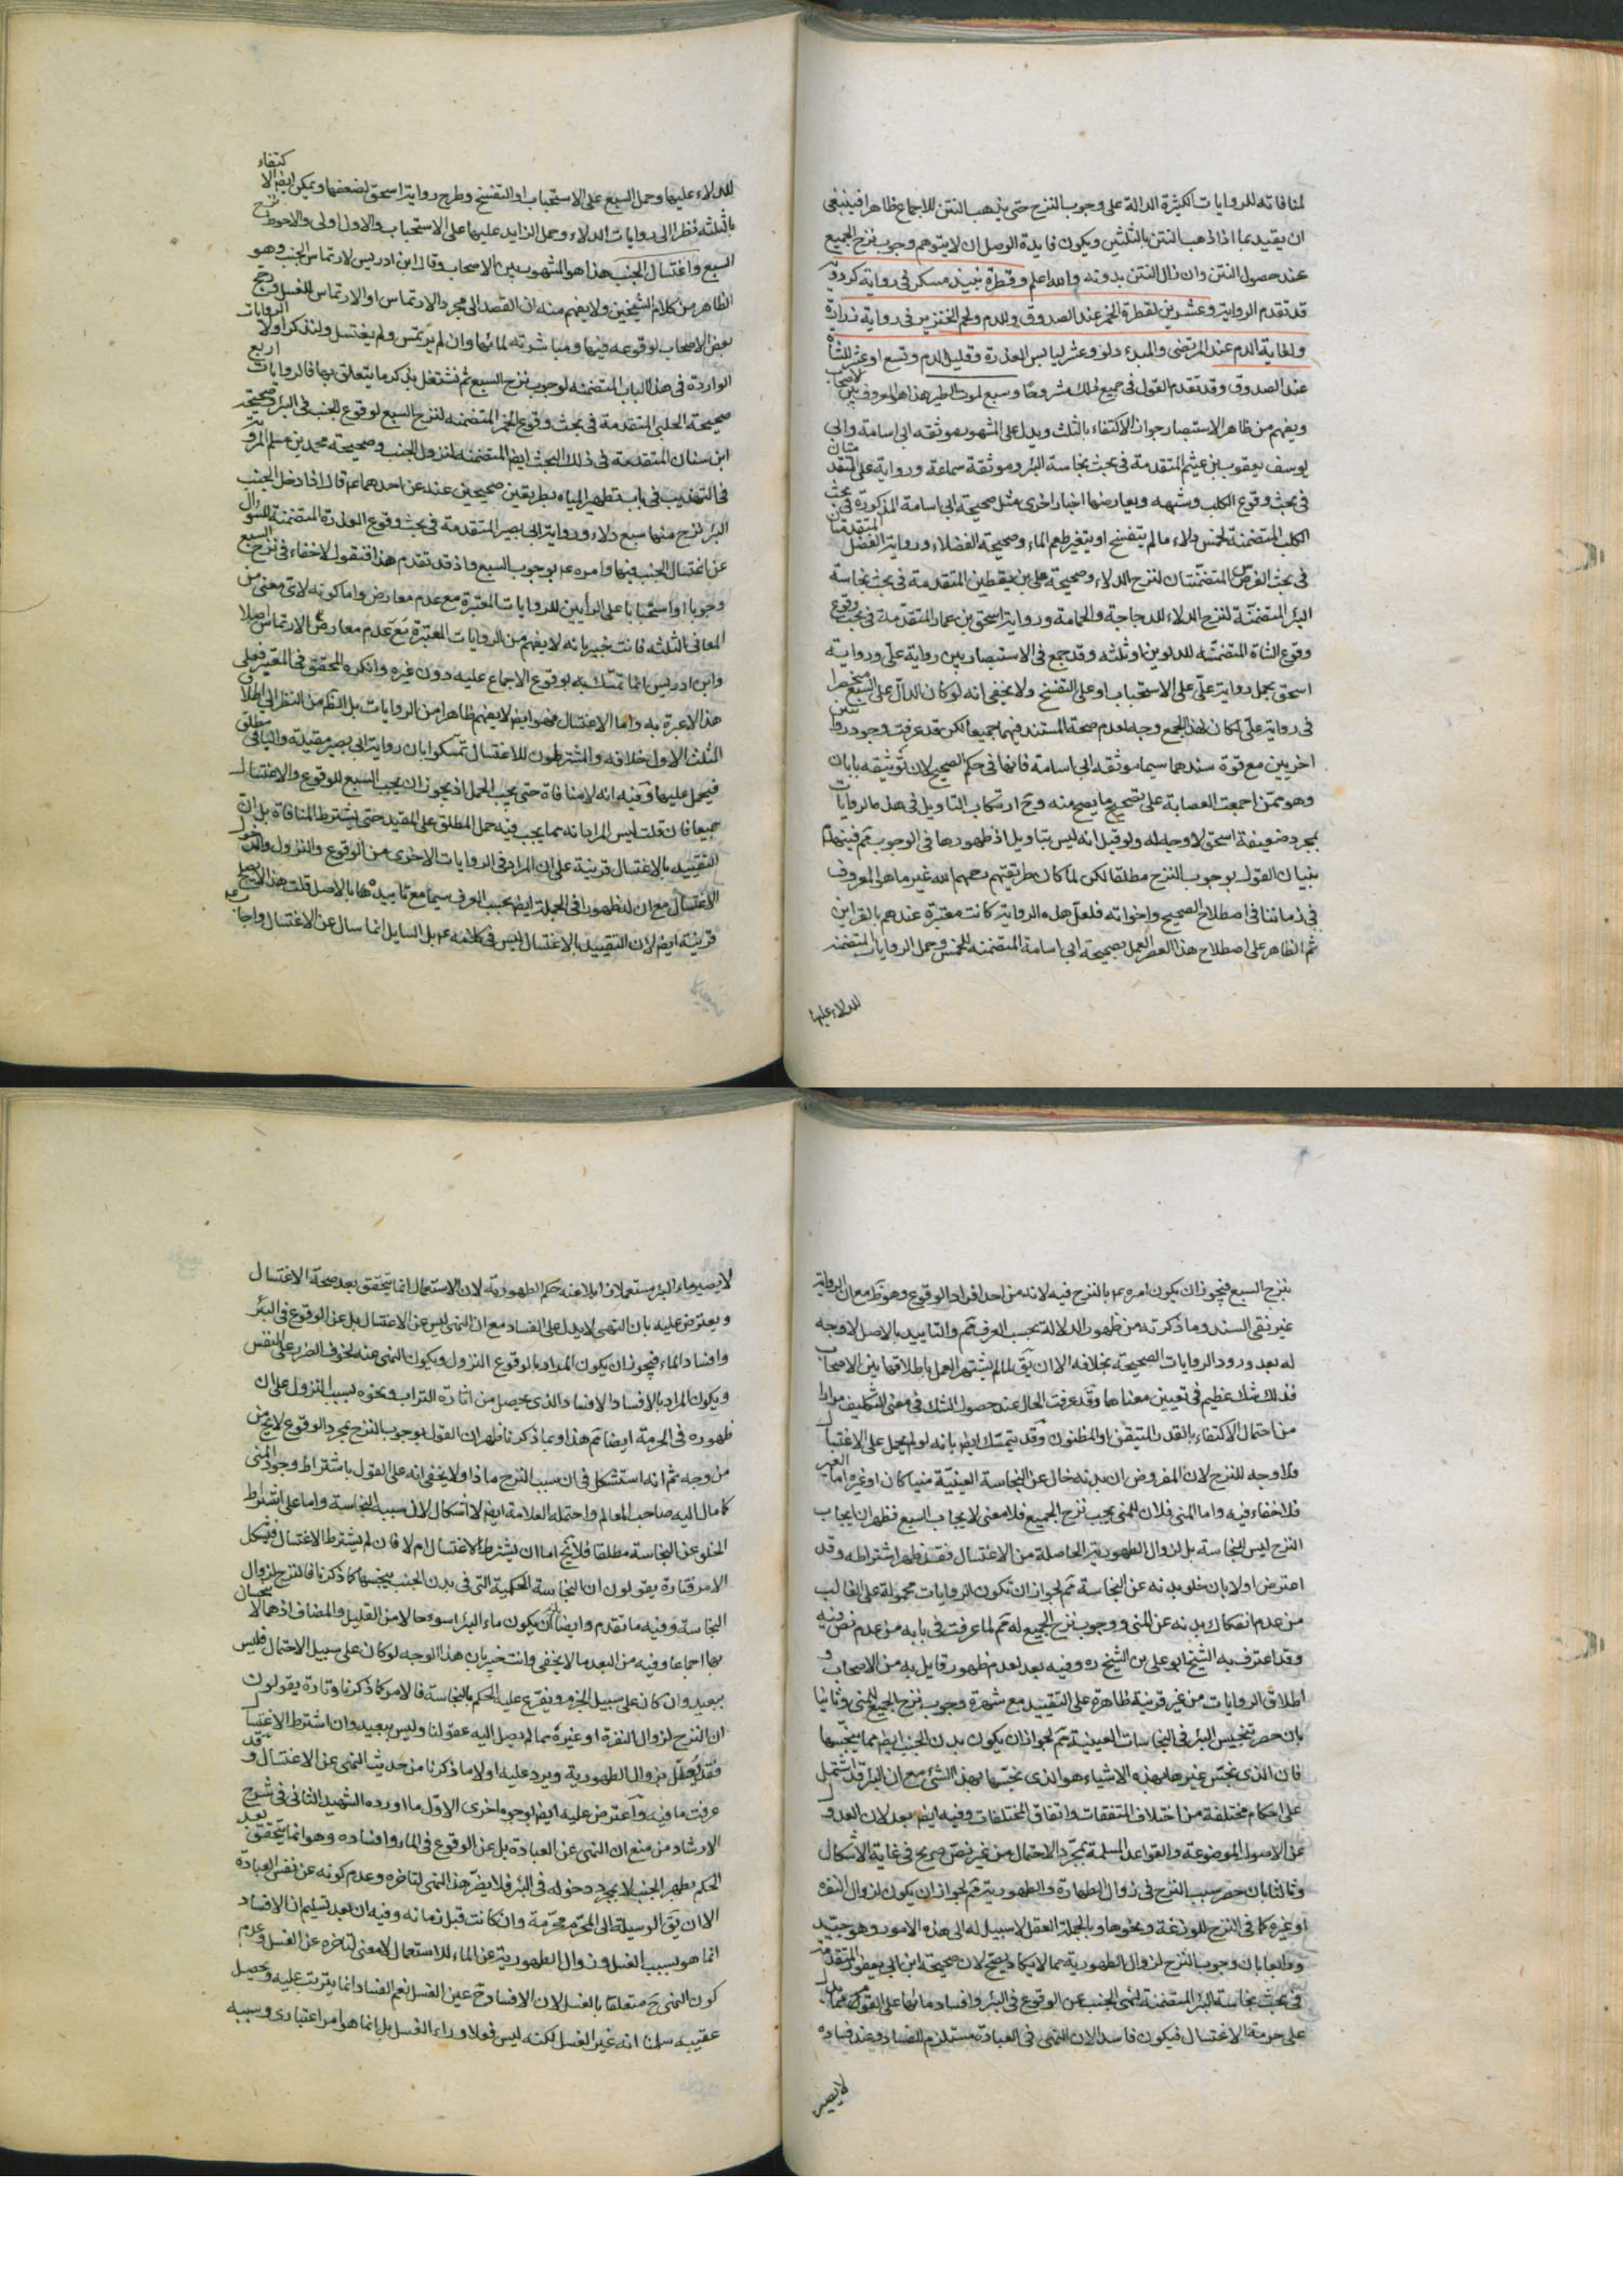 لمنافاته للروايات الكثيرة الدالة على وجوب النزح حتى يذهب النتن للاجماع ظاهرا فينبغى
ان يقيد بما اذا ذهب النتن بالثلثين ويكون فايدة الوصل ان لا يتوهم وجوب نزح الجميع
عند حصول النتن وان زال النتن بدونه والله اعلم وقطرة نبيذ مسكر فى رواية كردويه
قد تقدم الرواية وعشرين لقطرة الخمر عند الصدوق وللدم ولحم الخنزير فى رواية زرارة
ولغاية الدم عند المرتضى والمبدء دلو وعشر ليابس العذرة وقليل الدم وتسع او عشر للشاة
عند الصدوق وقد تقدم القول فى جميع ذلك مشروحا وسبع لموت الطير هذا هو المعروف بين الاصحاب
ويفهم من ظاهر الاستبصار جواز الاكتفاء بالثلث ويدل على المشهور موثقه ابى اسامة وابى
يوسف يعقوب بن عيثم المتقدمة فى بحث نجاسة البئر وموثقة سماعة ورواية على المتقدمتان
فى بحث وقوع الكلب وشبهه ويعارضها اخبار اخرى مثل صحيحة ابى اسامة المذكورة فى بحث
الكلب المتضمنة لخمس دلاء ما لم يتفسخ او يتغير طعم الماء وصحيحة الفضلاء ورواية الفضل المتقدمتان
فى بحث الفرس المتضمنتان لنزح الدلاء وصحيحة على بن يقطين المتقدمة فى بحث نجاسة
البئر المتضمنة لنزح الدلاء للدجاجة والحمامة ورواية اسحق بن عمار المتقدمة فى بحث وقوع
وقوع الشاة المتضمنه للدلوين او ثلثه وقد جمع فى الاستبصار بين رواية على ورواية
اسحق بحمل رواية على على الاستحباب او على التفسخ ولا يخفى انه لو كان الدال على السبع منحصرا
فى رواية على لكان لهذا الجمع وجه لعدم صحة المستند فيهما جميعا لكن قد عرفت وجود روايتين
اخريين مع قوة سندهما سيما موثقه ابى اسامة فانها فى حكم الصحيح لان توثيقه بابان
وهو ممن اجمعت العصابة على تصحيح ما يصح منه وح ارتكاب التاويل فى هذه الروايات
بمجرد ضعيفة اسحق لا وجه له ولو قيل انه ليس بتاويل اذ ظهورها فى الوجوب مم فينهدم
بنيان القول بوجوب النزح مطلقا لكن لما كان طريقتهم رحمهم الله غير ما هو المعروف
فى زماننا فى اصطلاح الصحيح واخواته فلعل هذه الرواية كانت معتبرة عندهم بالقراين
ثم الظاهر على اصطلاح هذا العصر العمل بصحيحة ابى اسامة المتضمنه للخمس وحمل الروايات المتضمنة
للدلاء عليها
للدلاء عليها وحمل السبع على الاستحباب او التفسخ وطرح رواية اسحق لضعفها ويمكن ايضا الاكتفاء
بالثلثه نظرا الى روايات الدلاء وحمل الزايد عليها على الاستحباب والاول اولى والاحوط نزح
السبع واغتسال الجنب هذا هو المشهور بين الاصحاب وقال ابن ادريس لارتماس الجنب وهو
الظاهر من كلام الشيخين ولا يفهم منه ان القصد الى مجرد الارتماس او الارتماس للغسل ورجح
بعض الاصحاب لوقوعه فيها ومباشرته لمائها وان لم يرتمس ولم يغتسل ولنذكر اولا الروايات
الواردة فى هذا الباب المتضمنه لوجوب نزح السبع ثم نشتغل بذكر ما يتعلق بها فالروايات اربع
صحيحة الحلبى المتقدمة فى بحث وقوع الخمر المتضمنه لنزح السبع لوقوع الجنب فى البئر وصحيحة
ابن سنان المتقدمة فى ذلك البحث ايضا المتضمنه لنزول الجنب وصحيحة محمد بن مسلم المروية
فى التهذيب فى باب تطهير المياه بطريقين صحيحين عنه عن احدهما عم قال اذا دخل الجنب
البئر نزح منها سبع دلاء ورواية ابى بصير المتقدمة فى بحث وقوع العذرة المتضمنة للسؤال
عن اغتسال الجنب فيها وامره عم بوجوب السبع واذ قد تقدم هذا فنقول لا خفاء فى نزح السبع
وجوبا او استحبابا على الرأيين للروايات المعتبرة مع عدم معارض واما كونه لاى معنى من
المعانى الثلثه فانت خبير بانه لا يفهم من الروايات المعتبرة مع عدم معارض الارتماس اصلا
وابن ادريس انما تمسك به لوقوع الاجماع عليه دون غيره وانكره المحقق فى المعتبر فعلى
هذا لا عبرة به واما الاغتسال فهو ايضا لا يفهم ظاهرا من الروايات بل الظاهر من النظر الى اطلاق
الثلث الاول خلافه والمشترطون للاغتسال تمسكوا بان رواية ابى بصير مقيدة والباقى مطلق
فيحمل عليها وفيه انه لا منافاة حتى يجب الحمل اذ يجوز ان يجب السبع للوقوع والاغتسال
جميعا فان قلت ليس المراد انه مما يجب فيه حمل المطلق على المقيد حتى يشترط المنافاة بل ان
التقييد بالاغتسال قرينة على ان المراد فى الروايات الاخرى من الوقوع والنزول والدخول
الاغتسال مع ان لها ظهورا فى الجملة ايضا بحسب العرف سيما مع تاييدها بالاصل قلت هذا لا يصلح
قرينة ايضا لان التقييد بالاغتسال ليس فى كلامه عم بل السايل انما سال عن الاغتسال واجاب عم
بنزح السبع فيجوز ان يكون امره عم بالنزح فيه لانه من احد افراد الوقوع وهو ظ مع ان الرواية
غير نقى السند وما ذكرته من ظهور الدلالة بحسب العرف مم والتاييد بالاصل لا وجه
له بعد ورود الروايات الصحيحة بخلافه الا ان يق لما لم يشتهر العمل باطلاقها بين الاصحاب
فذلك شك عظيم فى تعيين معناها وقد عرفت الحال عند حصول الشك فى معنى التكليف مرارا
من احتمال الاكتفاء بالقدر المتيقن او المظنون وقد يتمسك ايضا بانه لو لم يحمل على الاغتسال
فلا وجه للنزح لان المفروض ان بدنه خال عن النجاسة العينية منيا كان او غيره اما الغير
فلا خفاء فيه واما المنى فلان للمنى يجب نزح الجميع فلا معنى لايجاب السبع فظهر ان ايجاب
النزح ليس للنجاسة بل لزوال الطهورية الحاصلة من الاغتسال فقد ظهر اشتراطه وقد
اعترض اولا بان خلو بدنه عن النجاسة مم لجواز ان تكون الروايات محمولة على الغالب
من عدم انفكاك بدنه عن المنى ووجوب نزح الجميع له مم لما عرفت فى بابه من عدم نص فيه
وقد اعترف به الشيخ ابو على بن الشيخ ره وفيه بعد لعدم ظهور قايل به من الاصحاب و
اطلاق الروايات من غير قرينة ظاهرة على التقييد مع شهرة وجوب نزح الجميع للمنى وثانيا
بان حصر تنجيس البئر فى النجاسات العينية مم لجواز ان يكون بدن الجنب ايضا مما ينجسها
فان الذى نجس غيرها بهذه الاشياء هو الذى نجسها بهذا الشئ مع ان البئر قد اشتمل
على احكام مختلفة من اختلاف المتفقات واتفاق المختلفات وفيه ايضا بعد لان العدول
عن الاصول الموضوعة والقواعد المسلمة بمجرد الاحتمال من غير نص صريح فى غاية الاشكال
وثالثا بان حصر سبب النزح فى زوال الطهارة والطهورية مم لجواز ان يكون لزوال النفرة
او غيره كما فى النزح للوزغة ونحوها وبالجملة العقل لا سبيل له الى هذه الامور وهو جيد
ورابعا بان وجوب النزح لزوال الطهورية مما لا يكاد يصح لان صحيحة ابن ابى يعفور المتقدمة
فى بحث نجاسة البئر المتضمنة لنهى الجنب عن الوقوع فى البئر وافساد مائها على القوم مما يدل
على حرمة الاغتسال فيكون فاسدا لان النهى فى العبادة مستلزم للفساد وعند فساده
لا يصير
لا يصير ماء البئر مستعملا فلا يلزمه حكم الطهورية لان الاستعمال انما يتحقق بعد صحة الاغتسال
ويعترض عليه بان النهى لا يدل على الفساد مع ان النهى ليس عن الاغتسال بل عن الوقوع فى البئر
وافساد الماء فيجوز ان يكون المراد بالوقوع النزول ويكون النهى عنه لخوف الضرر على النفس
ويكون المراد بالافساد الافساد الذى يحصل من اثارة التراب ونحوه بسبب النزول على ان
ظهوره فى الحرمة ايضا مم هذا وبما ذكرنا ظهر ان القول بوجوب النزح بمجرد الوقوع لا يخ من
من وجه ثم انه استشكل فى ان سبب النزح ماذا ولا يخفى انه على القول باشتراط وجود المنى
كما مال اليه صاحب المعالم واحتمله العلامة ايضا لا اشكال لان سببه النجاسة واما على اشتراط
الخلو عن النجاسة مطلقا فلا يخ اما ان يشترط الاغتسال ام لا فان لم يشترط الاغتسال فيشكل
الامر فتارة يقولون ان النجاسة الحكمية التى فى بدن الجنب ينجسها كما ذكرنا فالنزح لزوال
النجاسة وفيه ما تقدم وايضا يلزم ان يكون ماء البئر اسوء حالا من القليل والمضاف اذ هما لا ينجسان
بها اجماعا وفيه من البعد ما لا يخفى وانت خبير بان هذا الوجه لو كان على سبيل الاحتمال فليس
ببعيد وان كان على سبيل الجزم ويتفرع عليه الحكم بالنجاسة فالامر كما ذكرنا وتارة يقولون
ان النزح لزوال النفرة او غيره مما لم يصل اليه عقولنا وليس ببعيد وان اشترط الاغتسال
فقد يعلل بزوال الطهورية ويرد عليه اولا ما ذكرنا من حديث النهى عن الاغتسال وقد
عرفت ما فيه واعترض عليه ايضا بوجوه اخرى الاول ما اورده الشهيد الثانى فى شرح
الارشاد من منع ان النهى عن العبادة بل عن الوقوع فى الماء وافساده وهو انما يتحقق بعد
الحكم بطهر الجنب لا بمجرد دخوله فى البئر فلا يضر هذا النهى لتاخره وعدم كونه عن نفس العبادة
الا ان يق الوسيلة الى المحرم محرمة وان كانت قبل زمانه وفيه ان بعد تسليم ان الافساد
انما هو بسبب الغسل وزوال الطهورية عن الماء للاستعمال لا معنى لتاخره عن الغسل وعدم
كون النهى ح متعلقا بالغسل لان الافساد ح عين الغسل نعم الفساد انما يترتب عليه ويحصل
عقيبه سلمنا انه غير الغسل لكنه ليس فعلا وراء الغسل بل انما هو امر اعتبارى وسببه